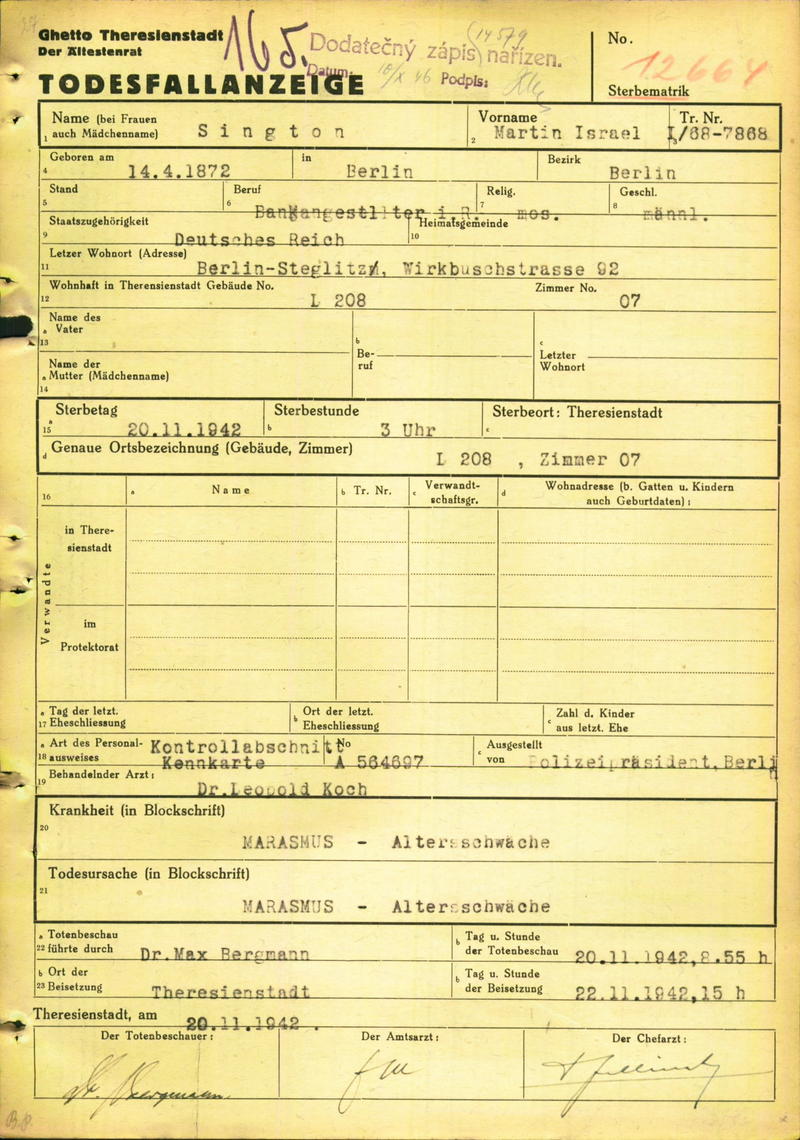 Ghetto Theresienstadt
Der Ältestenrat
165.
Dodatečný zápis nařízen.
(14579
Datum: 10/X 46 Podpis:
TODESFALLANZEIGE
No.
12664
Sterbematrik
Name (bei Frauen
1 auch Mädchenname) Sington
Vorname
2 Martin Israel
Tr. Nr.
3 I/68-7868
Geboren am
4 14.4.1872
in
Berlin
Bezirk
Berlin
Stand
5
Beruf
6 Bankangestllter i.R.
Relig.
7 mos.
Geschl.
8 männl.
Staatszugehörigkeit
9 Deutsches Reich
Heimatsgemeinde
10
Letzer Wohnort (Adresse)
11 Berlin-Steglitz, Wirkbuschstrasse 92
Wohnhaft in Therensienstadt Gebäude No.
12 L 208
Zimmer No.
07
Name des
a Vater
13
b
Be-
ruf
c
Letzter
Wohnort
Name der
a Mutter (Mädchenname)
14
Sterbetag
a
15 20.11.1942
Sterbestunde
b 3 Uhr
Sterbeort: Theresienstadt
c
Genaue Ortsbezeichnung (Gebäude, Zimmer)
d L 208 , Zimmer 07
16
a Name
b Tr. Nr.
c Verwandt-
schaftsgr.
d Wohnadresse (b. Gatten u. Kindern
auch Geburtdaten):
Verwandte
in There-
sienstadt
im
Protektorat
a Tag der letzt.
17 Eheschliessung
b Ort der letzt.
Eheschliessung
c Zahl d. Kinder
aus letzt. Ehe
a Art des Personal-
18 ausweises
Kontrollabschnitt
Kennkarte
No
A 564697
c Ausgestellt
von Polizeipräsident, Berli
Behandelnder Arzt:
19 Dr. Leopold Koch
Krankheit (in Blockschrift)
20
MARASMUS - Altersschwäche
Todesursache (in Blockschrift)
21
MARASMUS - Altersschwäche
a Totenbeschau
22 führte durch Dr. Max Bergmann
b Tag u. Stunde
der Totenbeschau 20.11.1942, 8.55 h
b Ort der
23 Beisetzung Theresienstadt
b Tag u. Stunde
der Beisetzung 22.11.1942, 15 h
Theresienstadt, am 20.11.1942.
Der Totenbeschauer:
Der Amtsarzt:
Der Chefarzt:
Dr. Bergmann
B.P.